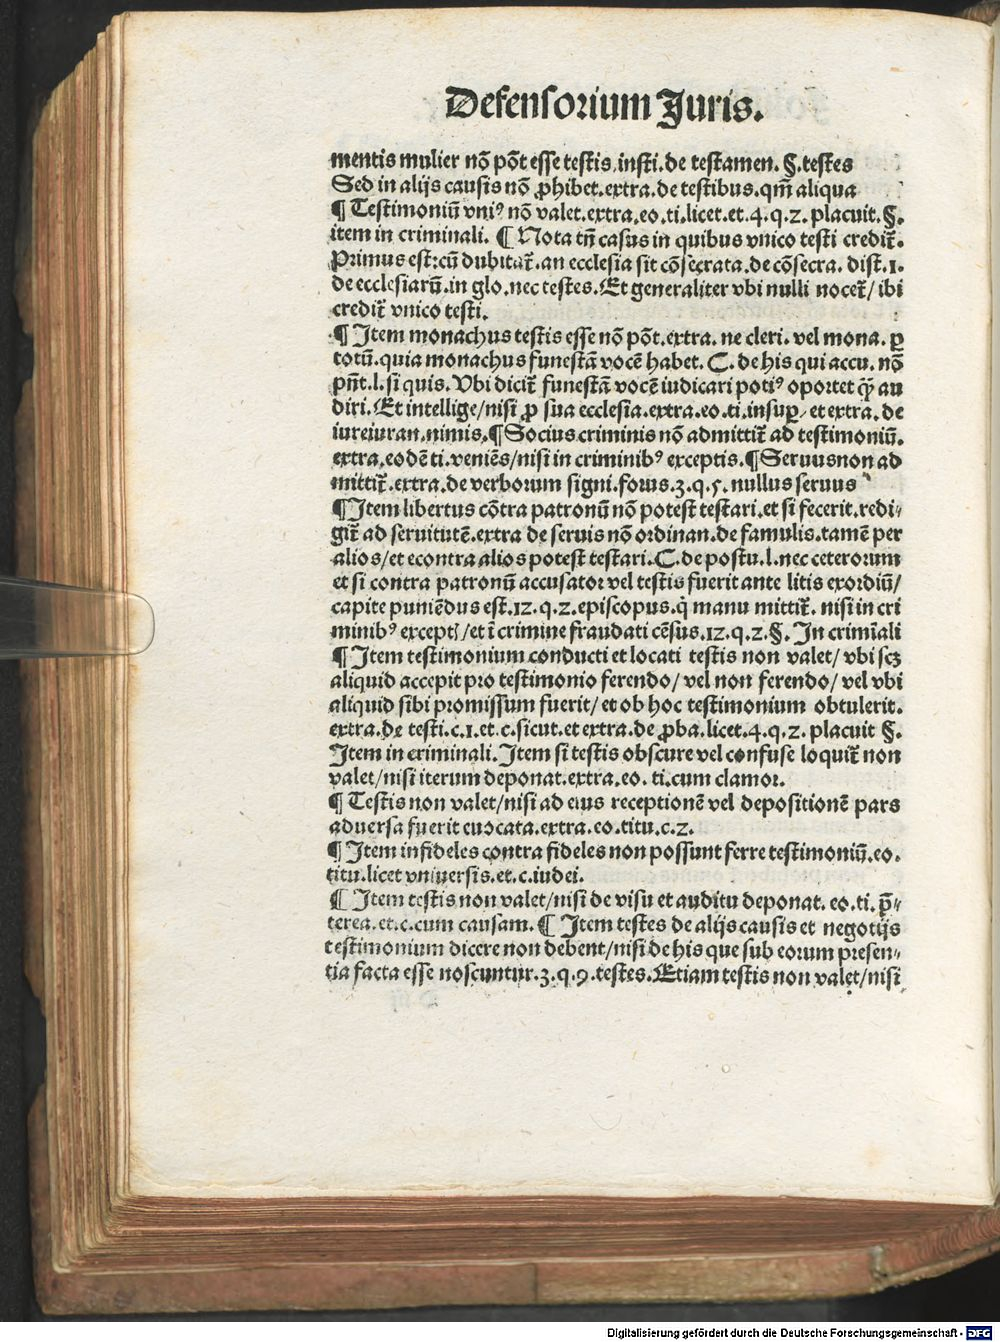 Defensorium Juris.
mentis mulier nō pōt esse testis.insti.de testamen. §.testes
Sed in alijs causis nō ꝓhibet.extra.de testibus.qm̄ aliqua
¶ Testimoniū vniꝰ nō valet.extra.eo.ti.licet.et.4.q.2. placuit.§.
item in criminali. ¶ Nota tn̄ casus in quibus vnico testi credit̄.
Primus est:cū dubitat̄.an ecclesia sit cōsecrata.de cōsecra. dist.1.
de ecclesiarū.in glo.nec testes.Et generaliter vbi nulli nocet̄/ ibi
credit̄ vnico testi.
¶ Item monachus testis esse nō pōt.extra. ne cleri. vel mona. ꝑ
totū.quia monachus funestā vocē habet. C. de his qui accu. nō
pn̄t.l.si quis. Vbi dicit̄ funestā vocē iudicari potiꝰ oportet qͣ̄ au
diri.Et intellige/nisi ꝓ sua ecclesia.extra.eo.ti.insuꝑ/ et extra.de
iureiuran.nimis.¶ Socius criminis nō admittit̄ ad testimoniū.
extra.eodē ti.veniēs/nisi in criminibꝰ exceptis.¶ Seruus non ad
mittit̄.extra.de verborum signi.forus.3.q.5. nullus seruus
¶ Item libertus cōtra patronū nō potest testari.et si fecerit.redi-
git̄ ad seruitutē.extra de seruis nō ordinan.de famulis.tamē per
alios/et econtra alios potest testari.C.de postu.l.nec ceterorum
et si contra patronū accusator vel testis fuerit ante litis exordiū/
capite puniēdus est.12.q.2.episcopus.qͥ manu mittit̄. nisi in cri
minibꝰ exceptꝭ/et ī crimine fraudati cēsus.12.q.2.§. In crimīali
¶ Item testimonium conducti et locati testis non valet/ vbi scꝫ
aliquid accepit pro testimonio ferendo/ vel non ferendo/ vel vbi
aliquid sibi promissum fuerit/ et ob hoc testimonium obtulerit.
extra.de testi.c.1.et.c.sicut.et extra.de ꝓba.licet.4.q.2. placuit §.
Item in criminali.Item si testis obscure vel confuse loquit̄ non
valet/nisi iterum deponat.extra.eo. ti.cum clamor.
¶ Testis non valet/nisi ad eius receptionē vel depositionē pars
aduersa fuerit euocata.extra.eo.titu.c.2.
¶ Item infideles contra fideles non possunt ferre testimoniū.eo.
titu.licet vniuersis.et.c.iudei.
¶ Item testis non valet/nisi de visu et auditu deponat. eo.ti.p̄-
terea.et.c.cum causam. ¶ Item testes de alijs causis et negotijs
testimonium dicere non debent/nisi de his que sub eorum presen-
tia facta esse noscuntur.3.q.9.testes.Etiam testis non valet/nisi
Digitalisierung gefördert durch die Deutsche Forschungsgemeinschaft - DFG